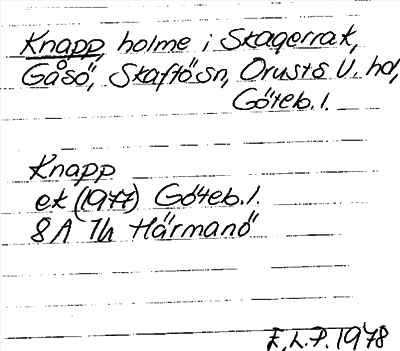 Knapp, holme i Skagerrak,
Gåsö, Skaftösn, Orusts V. hd,
Göteb. l.
Knapp
ek (1977) Göteb. l.
8A 7h Härmanö
E.L.P. 1978